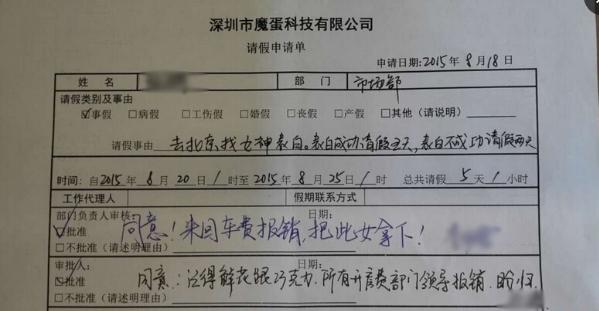 深圳市魔蛋科技有限公司
请假申请单
申请日期:2015年8月18日
姓名 部门 市场部
请假类别及事由
☑事假 □病假 □工伤假 □婚假 □丧假 □产假 □其他(请说明)
请假事由 去北京找女神表白。表白成功请假五天,表白不成功请假两天
时间:自2015年8月20日1时至2015年8月25日1时 总共请假5天1小时
工作代理人 假期联系方式
部门负责人审核: 日期:
☑批准 同意!来回车费报销,把此女拿下!
□不批准(请述明理由)
审批人: 日期:
☑批准 同意:记得鲜花跟巧克力.所有开房费部门领导报销.盼归
□不批准(请述明理由)